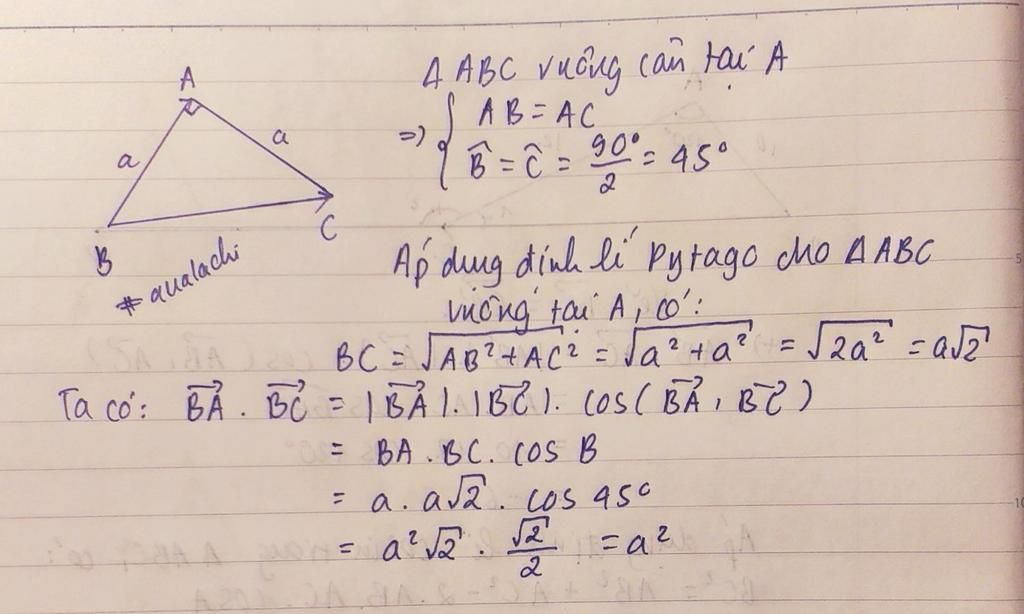 A
a
a
B
C
# aualachi
Δ ABC vuông cân tại A
=> { AB = AC
B̂ = Ĉ = 90°/2 = 45°
Áp dụng định lí Pytago cho Δ ABC
vuông tại A, có:
BC = √(AB² + AC²) = √(a² + a²) = √(2a²) = a√2
Ta có: BA⃗ . BC⃗ = |BA⃗| . |BC⃗| . cos(BA⃗, BC⃗)
= BA . BC . cos B
= a . a√2 . cos 45°
= a²√2 . √2/2 = a²